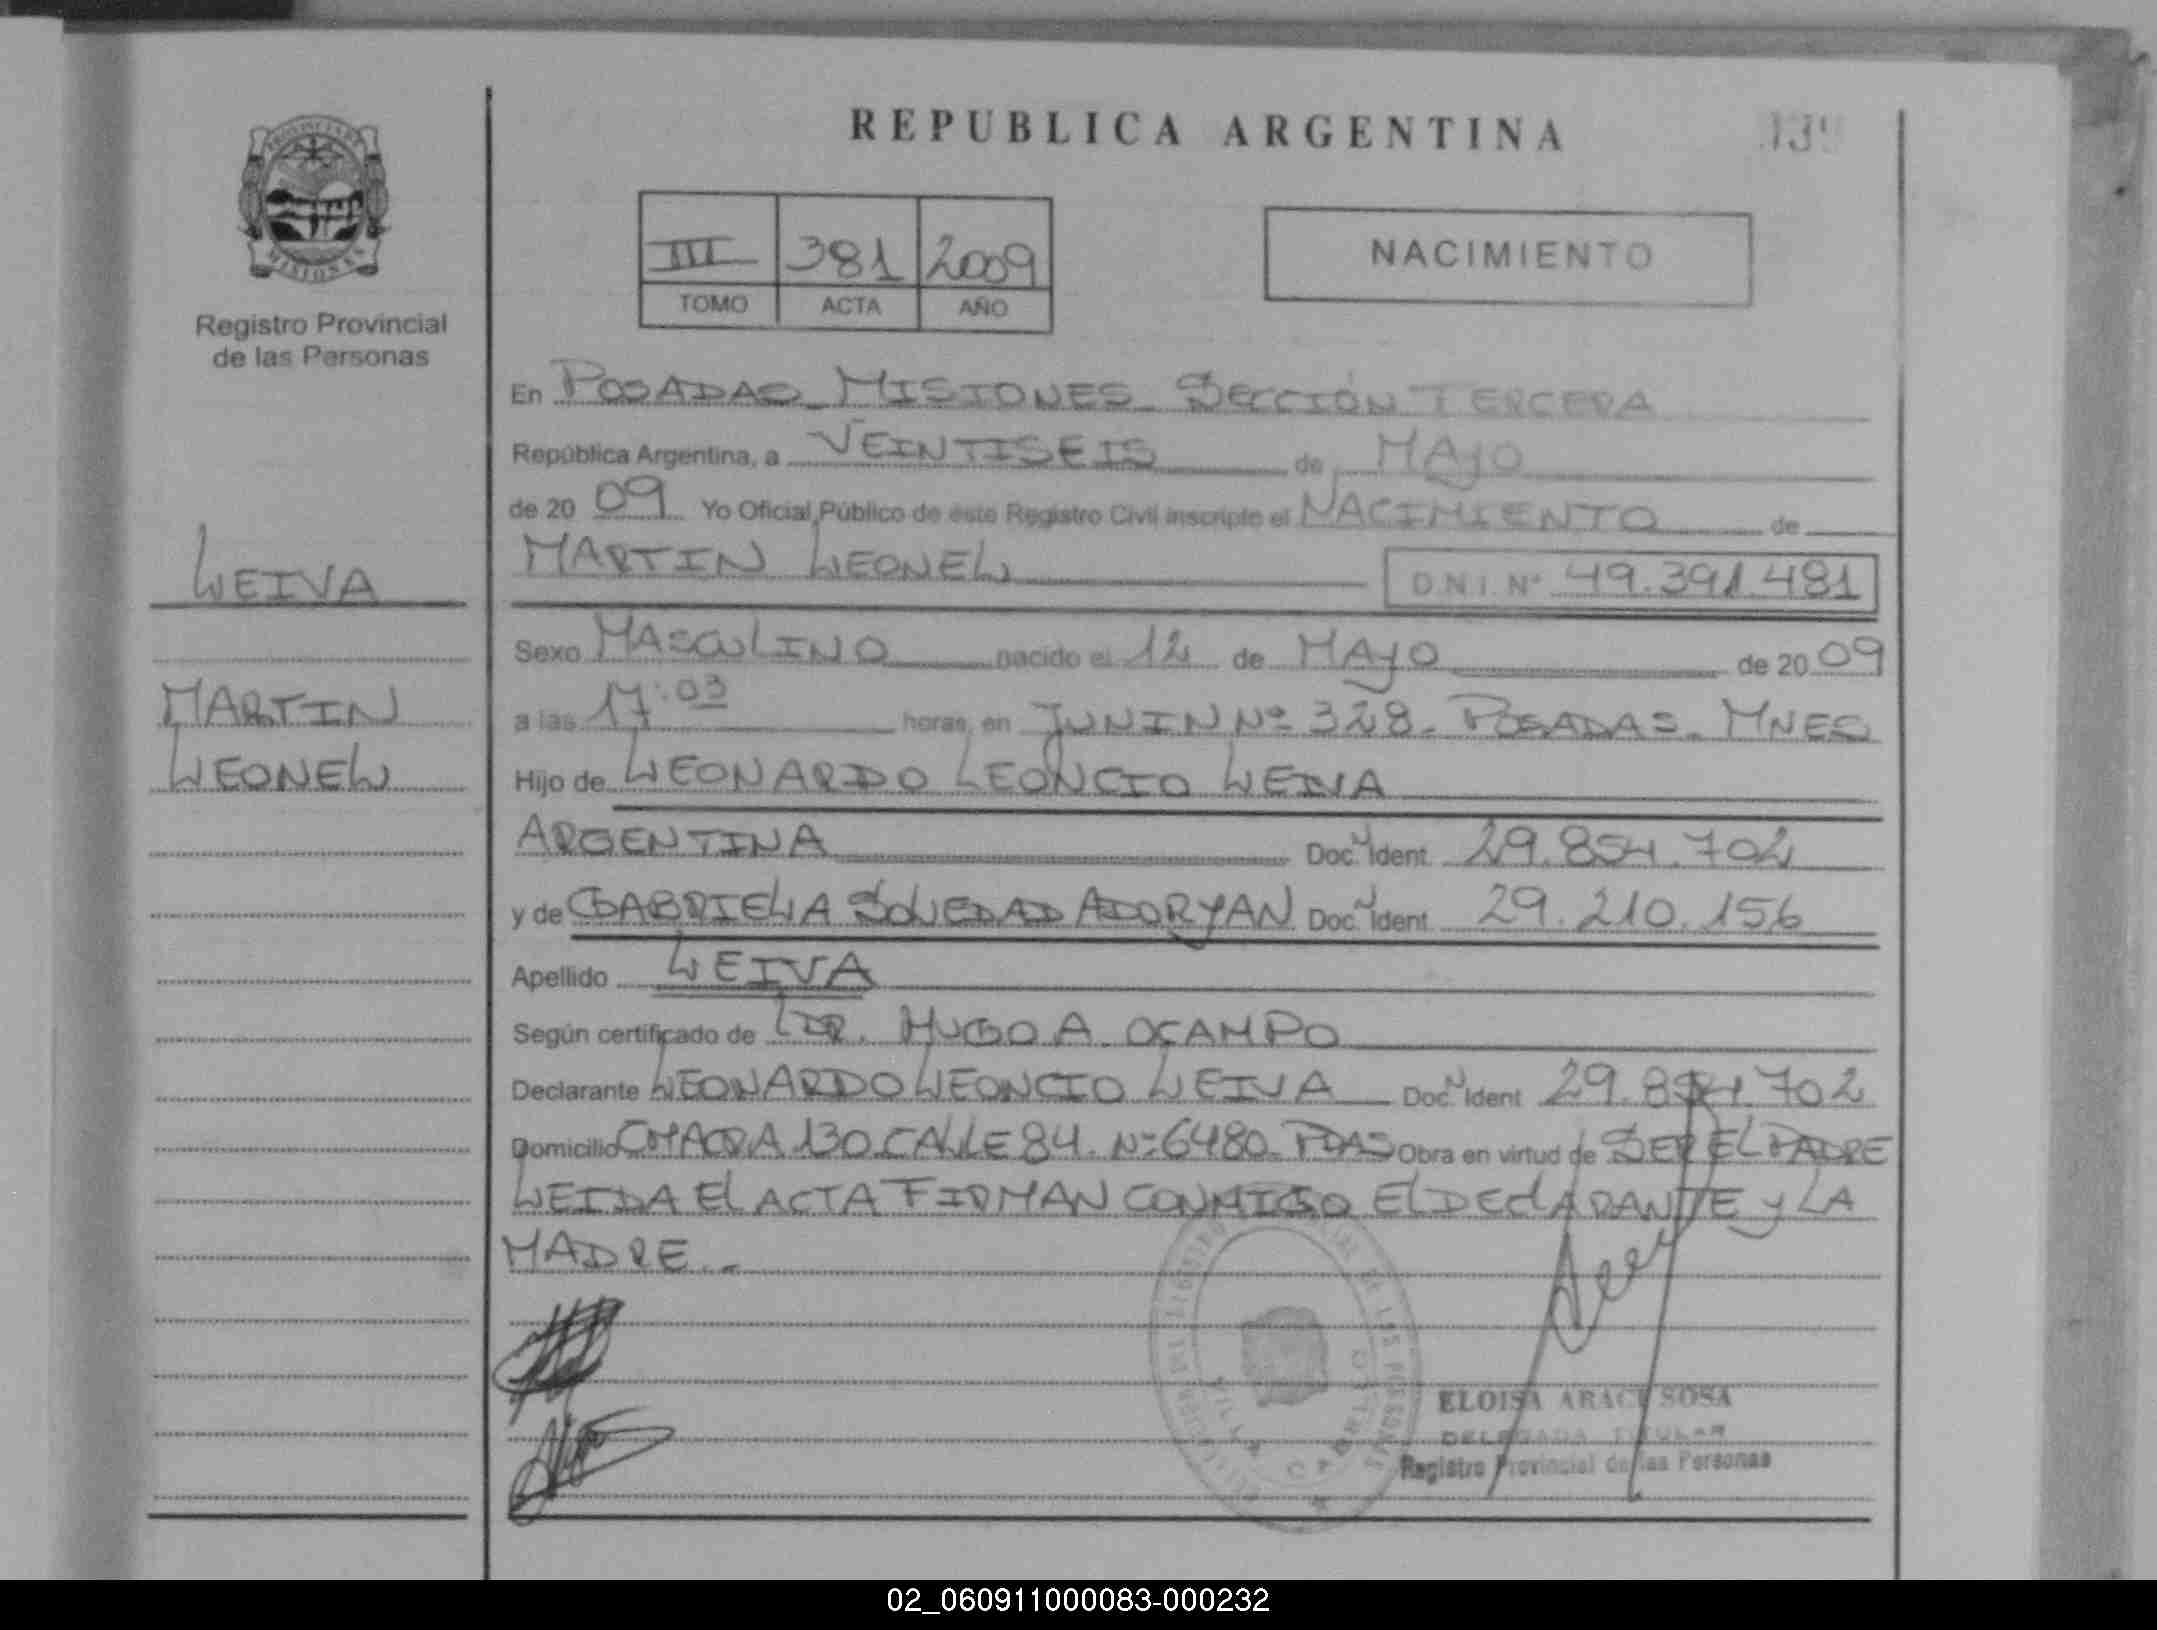 REPUBLICA ARGENTINA
PROVINCIA DE
MISIONES
Registro Provincial
de las Personas
III 381 2009
TOMO ACTA AÑO
NACIMIENTO
En POSADAS_MISIONES_SECCIÓN TERCERA
República Argentina, a VEINTISEIS de MAYO
de 20 09 Yo Oficial Público de este Registro Civil inscripto el NACIMIENTO de
LEIVA
MARTIN LEONEL D.N.I. Nº 49.391.481
Sexo MASCULINO nacido el 12 de MAYO de 20 09
MARTIN
LEONEL
a las 17:03 horas, en JUNIN Nº 328. POSADAS. MNES
Hijo de LEONARDO LEONCIO LEIVA
ARGENTINA Doc. Ident. 29.854.702
y de GABRIELA SOLEDAD ADORYAN Doc. Ident. 29.210.156
Apellido LEIVA
Según certificado de DR. HUGO A. OCAMPO
Declarante LEONARDO LEONCIO LEIVA Doc. Ident 29.854.702
Domicilio CHACRA 130 CALLE 84. Nº 6480. PDAS Obra en virtud de SER EL PADRE
LEIDA EL ACTA FIRMAN CONMIGO EL DECLARANTE y LA
MADRE.-
VILLA CABELLO
ELOISA ARACI SOSA
DELEGADA TITULAR
Registro Provincial de las Personas
02_060911000083-000232